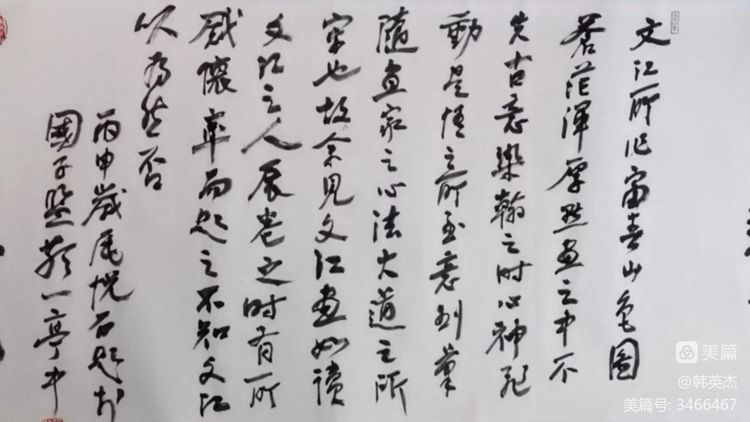 文江所作富春山色图
苍茫浑厚点画之中不
失古意染翰之时心神飛
動是情之所至意到筆
隨畫家之心法大道之所
宗也故余見文江畫如讀
文江之人展卷之时有所
感懷率而题之不知文江
以為然否
丙申歲尾悦石题於
國子監敬一亭中
美篇
@韩英杰
美篇号: 3466467